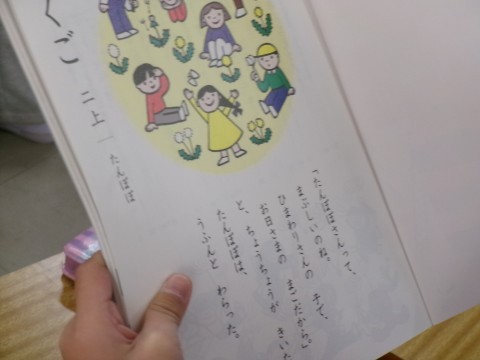 くご
二上
たんぽぽ
「たんぽぽさんって、
まぶしいのね。
ひまわりさんの　子で、
お日さまの　まごだから。」
と、ちょうちょうが　きいた
たんぽぽは、
うふんと　わらった。